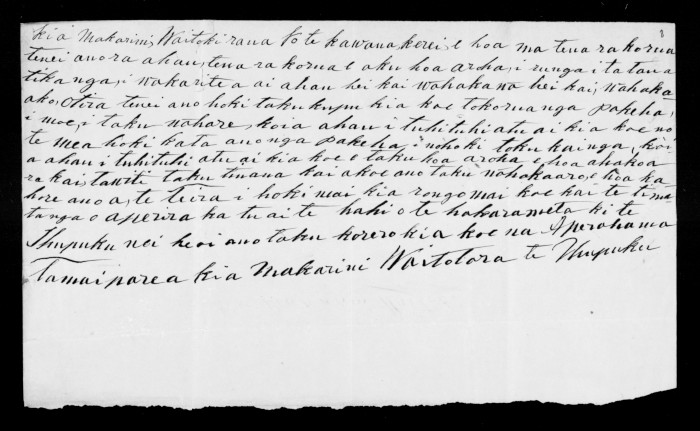 8
kia Makarini, Waitoki rana ko te kawana kerei, e hoa ma tena ra korua
tenei ano ra ahau, tena ra korua e aku hoa aroha, i runga i ta taua
tikanga, i wakarite a ai ahau hei kai wahakawa hei kai, wahaka
ako, Otira tenei ano hoki taku kupu kia koe tokorua nga pakeha,
i moe, i taku wahare, koia ahau i tuhituhi atu ai kia koe no
te mea hoki kata ano nga pakeha i nohoki toku kainga, koi
a ahau i tuhituhi atu ai kia koe e taku hoa aroha, e hoa ahakoa
ra kai tawite taku tinana kai a koe ano taku wahakaaro, e hoa ka
hore ano a, te Teira i hoki mai kia rongo mai koe kai te ti ma
tanga o aperira ka tu ai te hahi o te hakarameta ki te
Ihupuku nei heoi ano taku korero kia koe na Aperahama
Tamaiparea kia Makarini Waitotara te Ihupuku